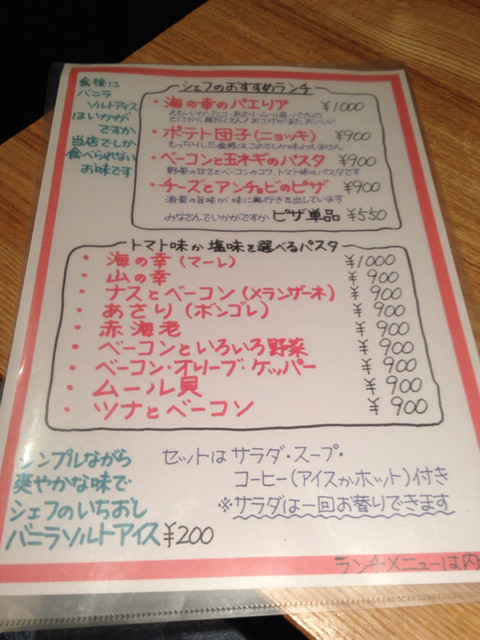 食後に
バニラ
ソルトアイス
はいかが
ですか
当店でしか
食べられない
お味です
シェフのおすすめランチ
・海の幸のパエリア ¥1000
・ポテト団子(ニョッキ) ¥900
もっちりした食感はこれでしか味わえません
・ベーコンと玉ネギのパスタ ¥900
野菜の甘さとベーコンのコク、トマト味のパスタです
・チーズとアンチョビのピザ ¥900
海藻の旨味が味に奥行きを出しています
みなさんでいかがですか ピザ単品 ¥550
トマト味か塩味を選べるパスタ
・海の幸(マーレ) ¥1000
・山の幸 ¥900
・ナスとベーコン(メランザーネ) ¥900
・あさり(ボンゴレ) ¥900
・赤海老 ¥900
・ベーコンといろいろ野菜 ¥900
・ベーコン・オリーブ・ケッパー ¥900
・ムール貝 ¥900
・ツナとベーコン ¥900
シンプルながら
爽やかな味で
シェフのいちおし
バニラソルトアイス ¥200
セットはサラダ・スープ・
コーヒー(アイスかホット)付き
※サラダは一回お替りできます
ランチメニューは内